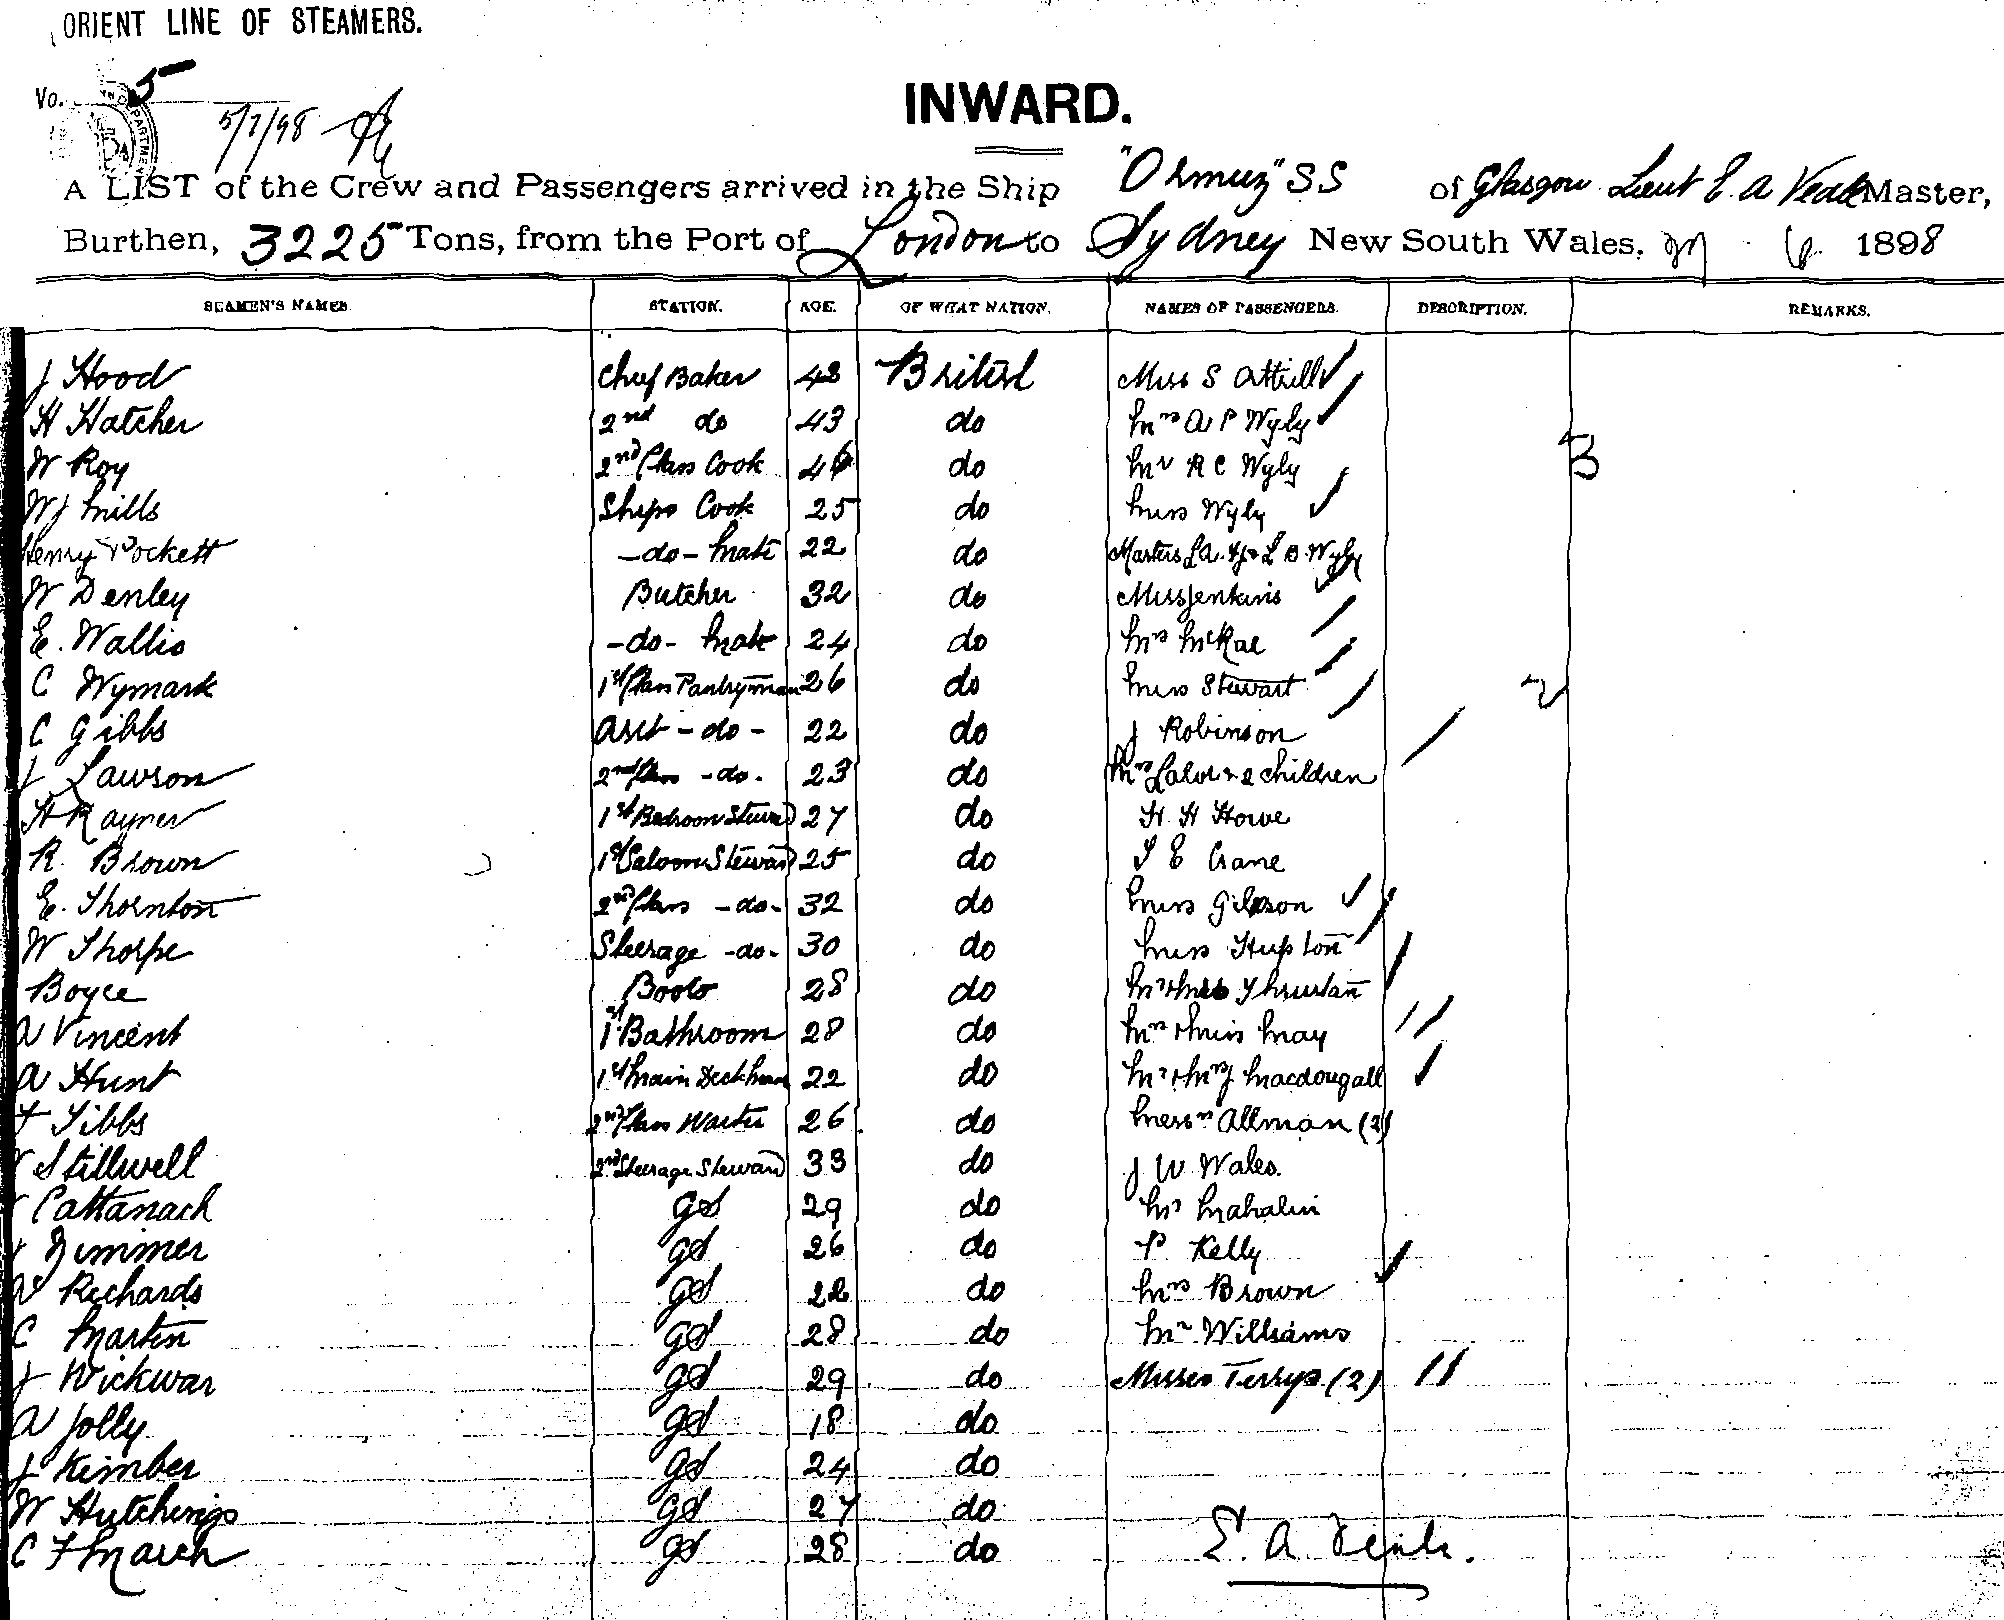 ORIENT LINE OF STEAMERS.
Vo. 5
5/7/98
INWARD.
A LIST of the Crew and Passengers arrived in the Ship "Ormuz" SS of Glasgow Lieut E. A Veale Master,
Burthen, 3225 Tons, from the Port of London to Sydney New South Wales, 1898
SEAMEN'S NAMES. STATION. AGE. OF WHAT NATION. NAMES OF PASSENGERS. DESCRIPTION. REMARKS.
J Hood Chief Baker 48 British Miss S Attrill
H Hatcher 2nd do 43 do Mrs A P Wyly
W Roy 2nd Class Cook 46 do Mr R C Wyly
W J Mills Ships Cook 25 do Miss Wyly
Henry Pockett -do- Mate 22 do Masters L B Wyly
W Denley Butcher 32 do Miss Jenkins
E. Wallis -do- Mate 24 do Mrs McRae
C Wymark 1st Class Pantryman 26 do Miss Stewart
C Gibbs Asst -do- 22 do J Robinson
J Lawson 2nd Class -do- 23 do Mrs Lalor & 2 children
H Rayner 1st Bedroom Steward 27 do H. H Howe
R. Brown 1st Saloon Steward 25 do S E Crane
E. Thornton 2nd Class -do- 32 do Miss Gibson
W Thorpe Steerage -do- 30 do Miss Hupton
Boyce Boots 28 do Mr & Mrs Thurstan
A Vincent 1st Bathroom 28 do Mrs & Miss May
A Hunt 1st Main Deckman 22 do Mr & Mrs J Macdougall
F Tibbs 2nd Class Waiter 26 do Messrs Allman (2)
Stillwell 2nd Steerage Steward 33 do J W Wales.
Cattanach GS 29 do Mr Mahalin
Zimmer GS 26 do P Kelly
Richards GS 22 do Mrs Brown
C Martin GS 28 do Mr Williams
J Wickwar GS 29 do Misses Terrys (2)
A Jolly GS 18 do
J Kimber GS 24 do
W Hutchings GS 27 do
C F March GS 28 do E. A Veale.